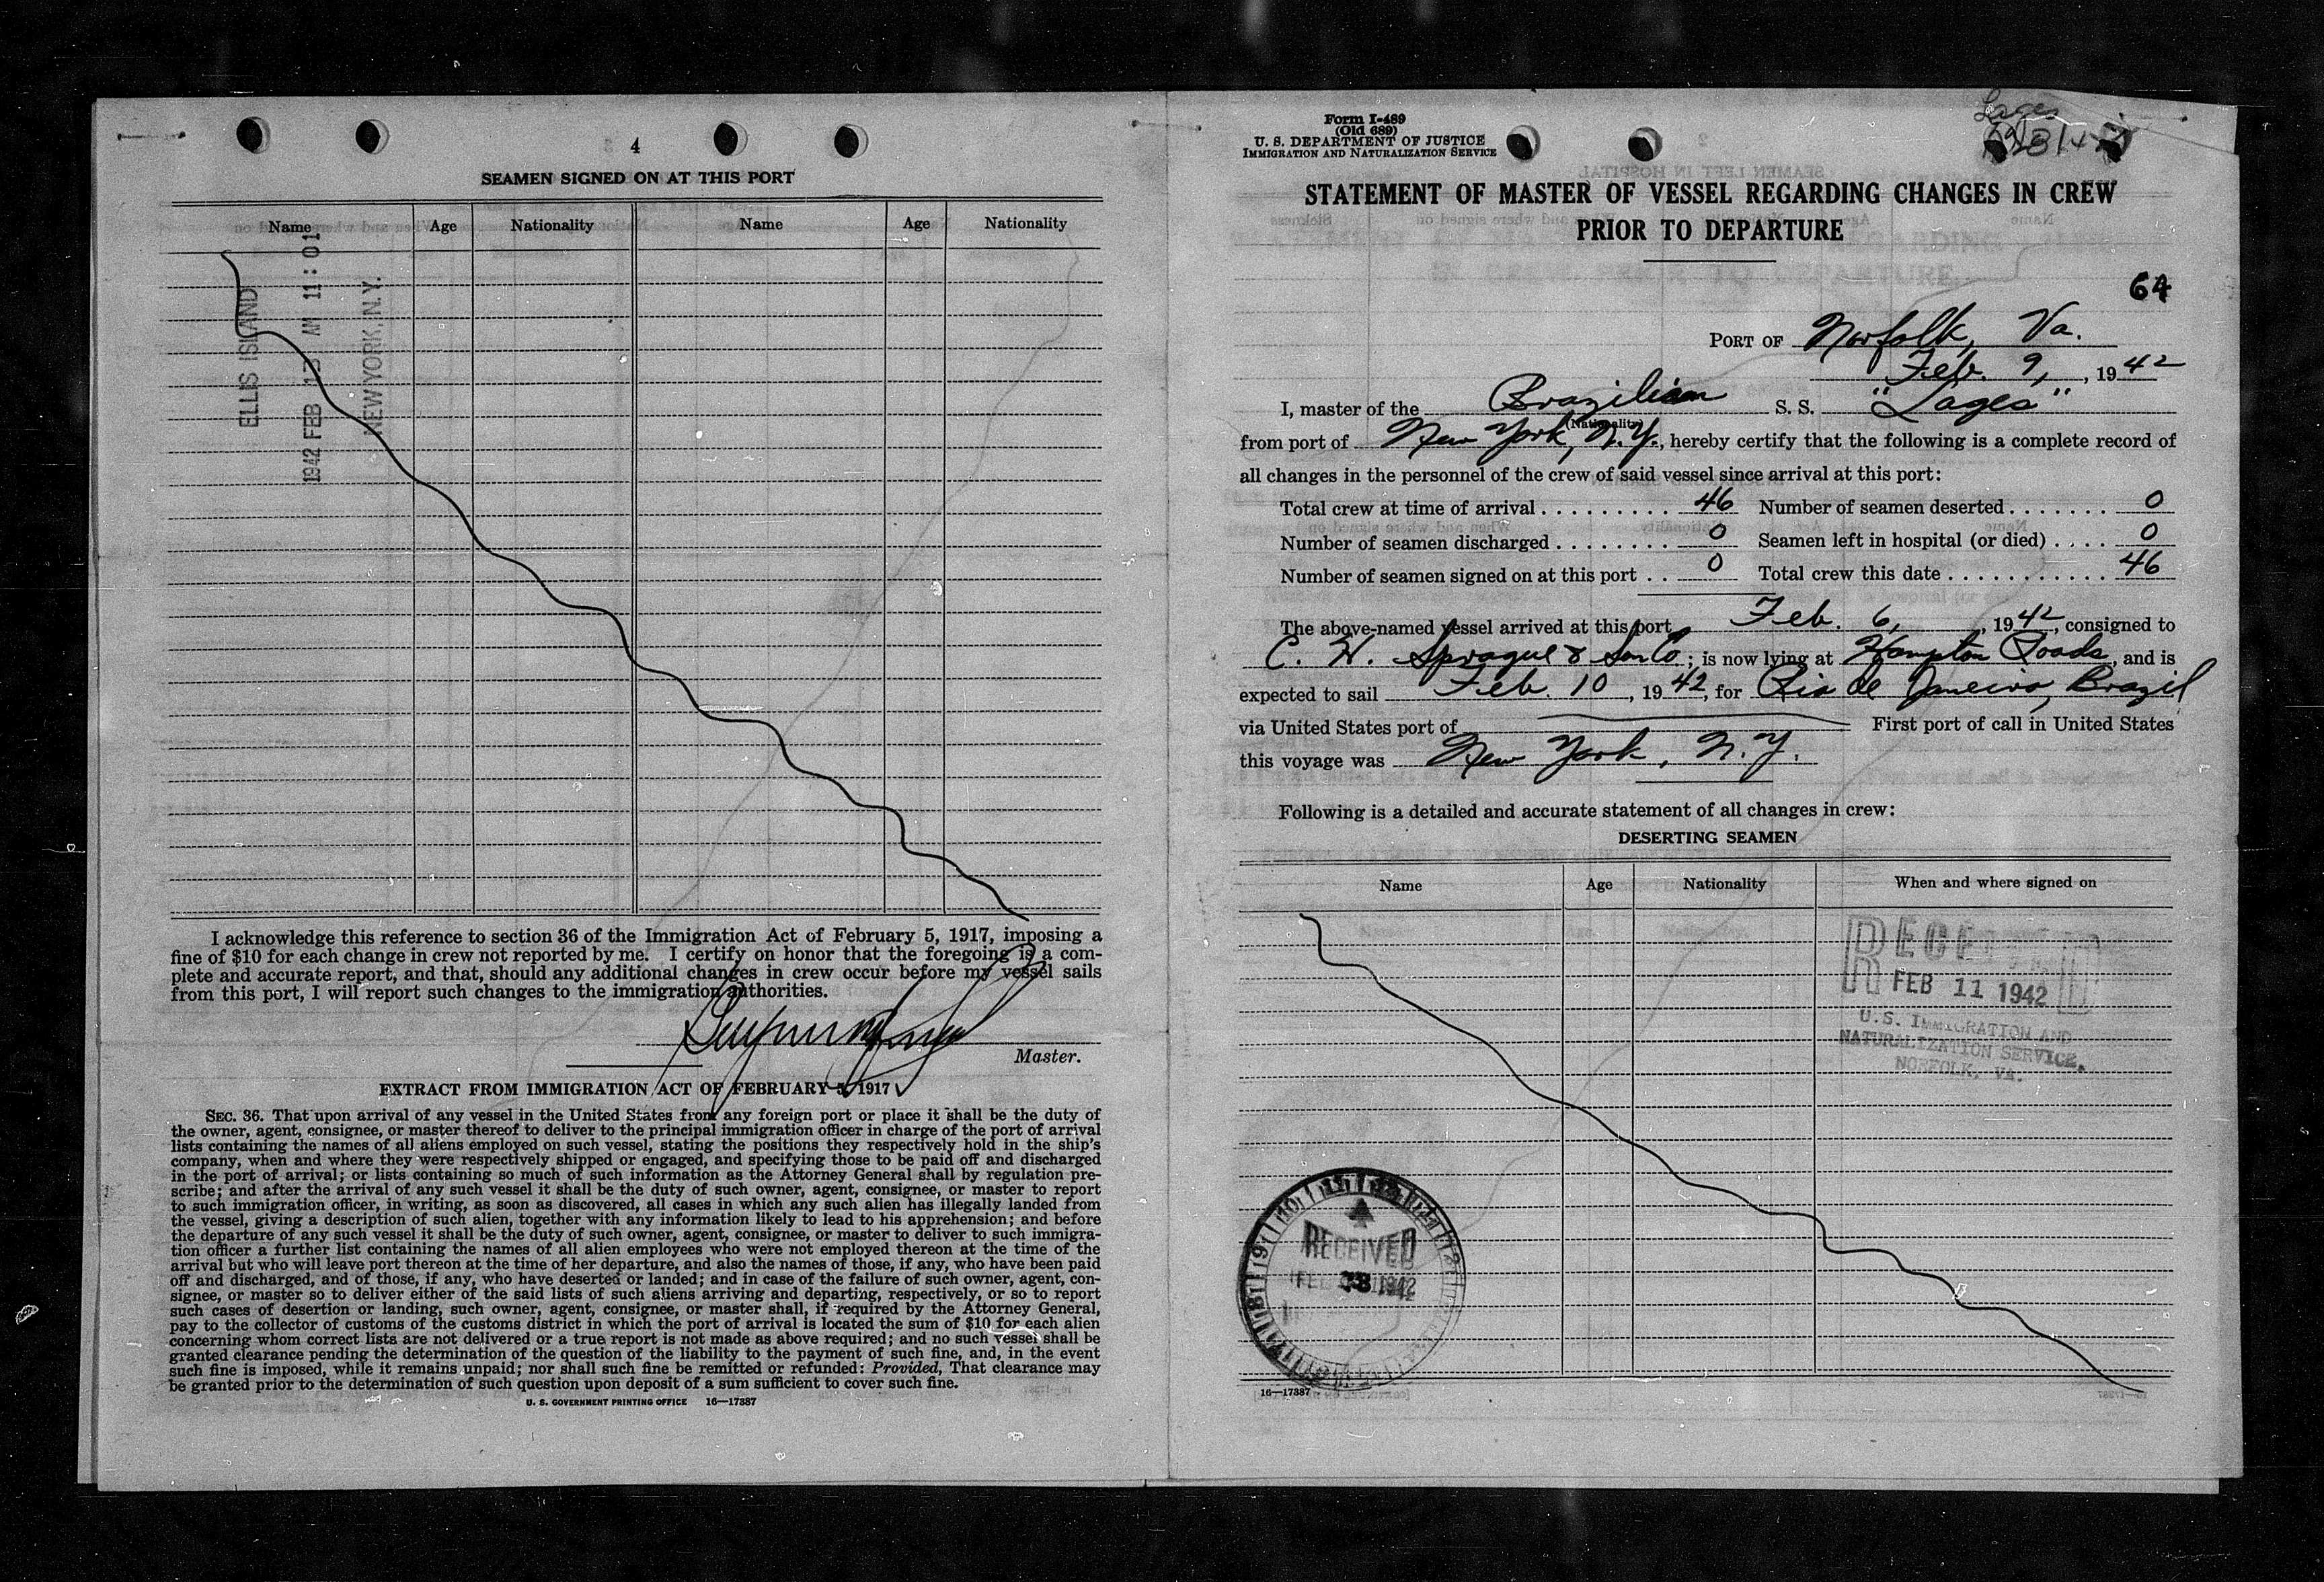 4
SEAMEN SIGNED ON AT THIS PORT
Name Age Nationality Name Age Nationality
ELLIS ISLAND
1942 FEB 13 AM 11:01
NEW YORK, N.Y.
I acknowledge this reference to section 36 of the Immigration Act of February 5, 1917, imposing a
fine of $10 for each change in crew not reported by me. I certify on honor that the foregoing is a com-
plete and accurate report, and that, should any additional changes in crew occur before my vessel sails
from this port, I will report such changes to the immigration authorities.
Master.
EXTRACT FROM IMMIGRATION ACT OF FEBRUARY 5, 1917
SEC. 36. That upon arrival of any vessel in the United States from any foreign port or place it shall be the duty of
the owner, agent, consignee, or master thereof to deliver to the principal immigration officer in charge of the port of arrival
lists containing the names of all aliens employed on such vessel, stating the positions they respectively hold in the ship's
company, when and where they were respectively shipped or engaged, and specifying those to be paid off and discharged
in the port of arrival; or lists containing so much of such information as the Attorney General shall by regulation pre-
scribe; and after the arrival of any such vessel it shall be the duty of such owner, agent, consignee, or master to report
to such immigration officer, in writing, as soon as discovered, all cases in which any such alien has illegally landed from
the vessel, giving a description of such alien, together with any information likely to lead to his apprehension; and before
the departure of any such vessel it shall be the duty of such owner, agent, consignee, or master to deliver to such immigra-
tion officer a further list containing the names of all alien employees who were not employed thereon at the time of the
arrival but who will leave port thereon at the time of her departure, and also the names of those, if any, who have been paid
off and discharged, and of those, if any, who have deserted or landed; and in case of the failure of such owner, agent, con-
signee, or master so to deliver either of the said lists of such aliens arriving and departing, respectively, or so to report
such cases of desertion or landing, such owner, agent, consignee, or master shall, if required by the Attorney General,
pay to the collector of customs of the customs district in which the port of arrival is located the sum of $10 for each alien
concerning whom correct lists are not delivered or a true report is not made as above required; and no such vessel shall be
granted clearance pending the determination of the question of the liability to the payment of such fine, and, in the event
such fine is imposed, while it remains unpaid; nor shall such fine be remitted or refunded: Provided, That clearance may
be granted prior to the determination of such question upon deposit of a sum sufficient to cover such fine.
U. S. GOVERNMENT PRINTING OFFICE 16—17387
Form I-489
(Old 689)
U. S. DEPARTMENT OF JUSTICE
IMMIGRATION AND NATURALIZATION SERVICE
Lages
STATEMENT OF MASTER OF VESSEL REGARDING CHANGES IN CREW
PRIOR TO DEPARTURE
64
PORT OF Norfolk, Va.
Feb. 9, , 1942
I, master of the Brazilian S. S. "Lages"
(Nationality)
from port of New York, N.Y., hereby certify that the following is a complete record of
all changes in the personnel of the crew of said vessel since arrival at this port:
Total crew at time of arrival . . . . . . . . . 46 Number of seamen deserted . . . . . . . 0
Number of seamen discharged . . . . . . . . 0 Seamen left in hospital (or died) . . . . 0
Number of seamen signed on at this port . . 0 Total crew this date . . . . . . . . . . . . 46
The above-named vessel arrived at this port Feb. 6, , 1942, consigned to
C. H. Sprague & Son Co; is now lying at Hampton Roads, and is
expected to sail Feb 10, 1942, for Rio de Janeiro, Brazil
via United States port of First port of call in United States
this voyage was New York, N.Y.
Following is a detailed and accurate statement of all changes in crew:
DESERTING SEAMEN
Name Age Nationality When and where signed on
FEB 11 1942
U.S. IMMIGRATION AND
NATURALIZATION SERVICE,
NORFOLK, VA.
RECEIVED
1942
16—17387